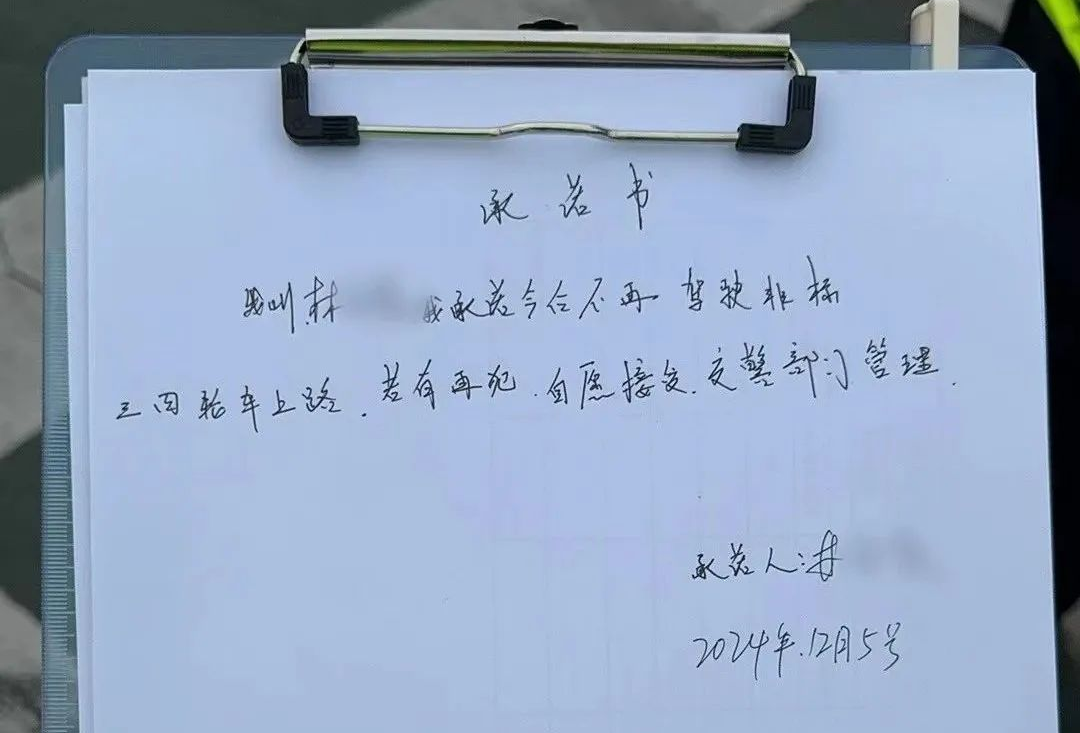 承诺书
我叫林 我承诺今后不再驾驶非标
三四轮车上路.若有再犯.自愿接受.交警部门管理.
承诺人:林
2024年.12月5号